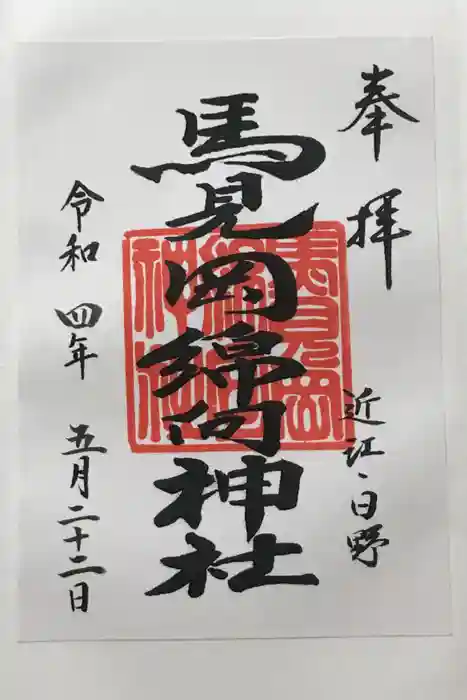 奉拝
近江・日野
馬見岡綿向神社
馬見岡
綿向
神社
令和四年 五月二十二日